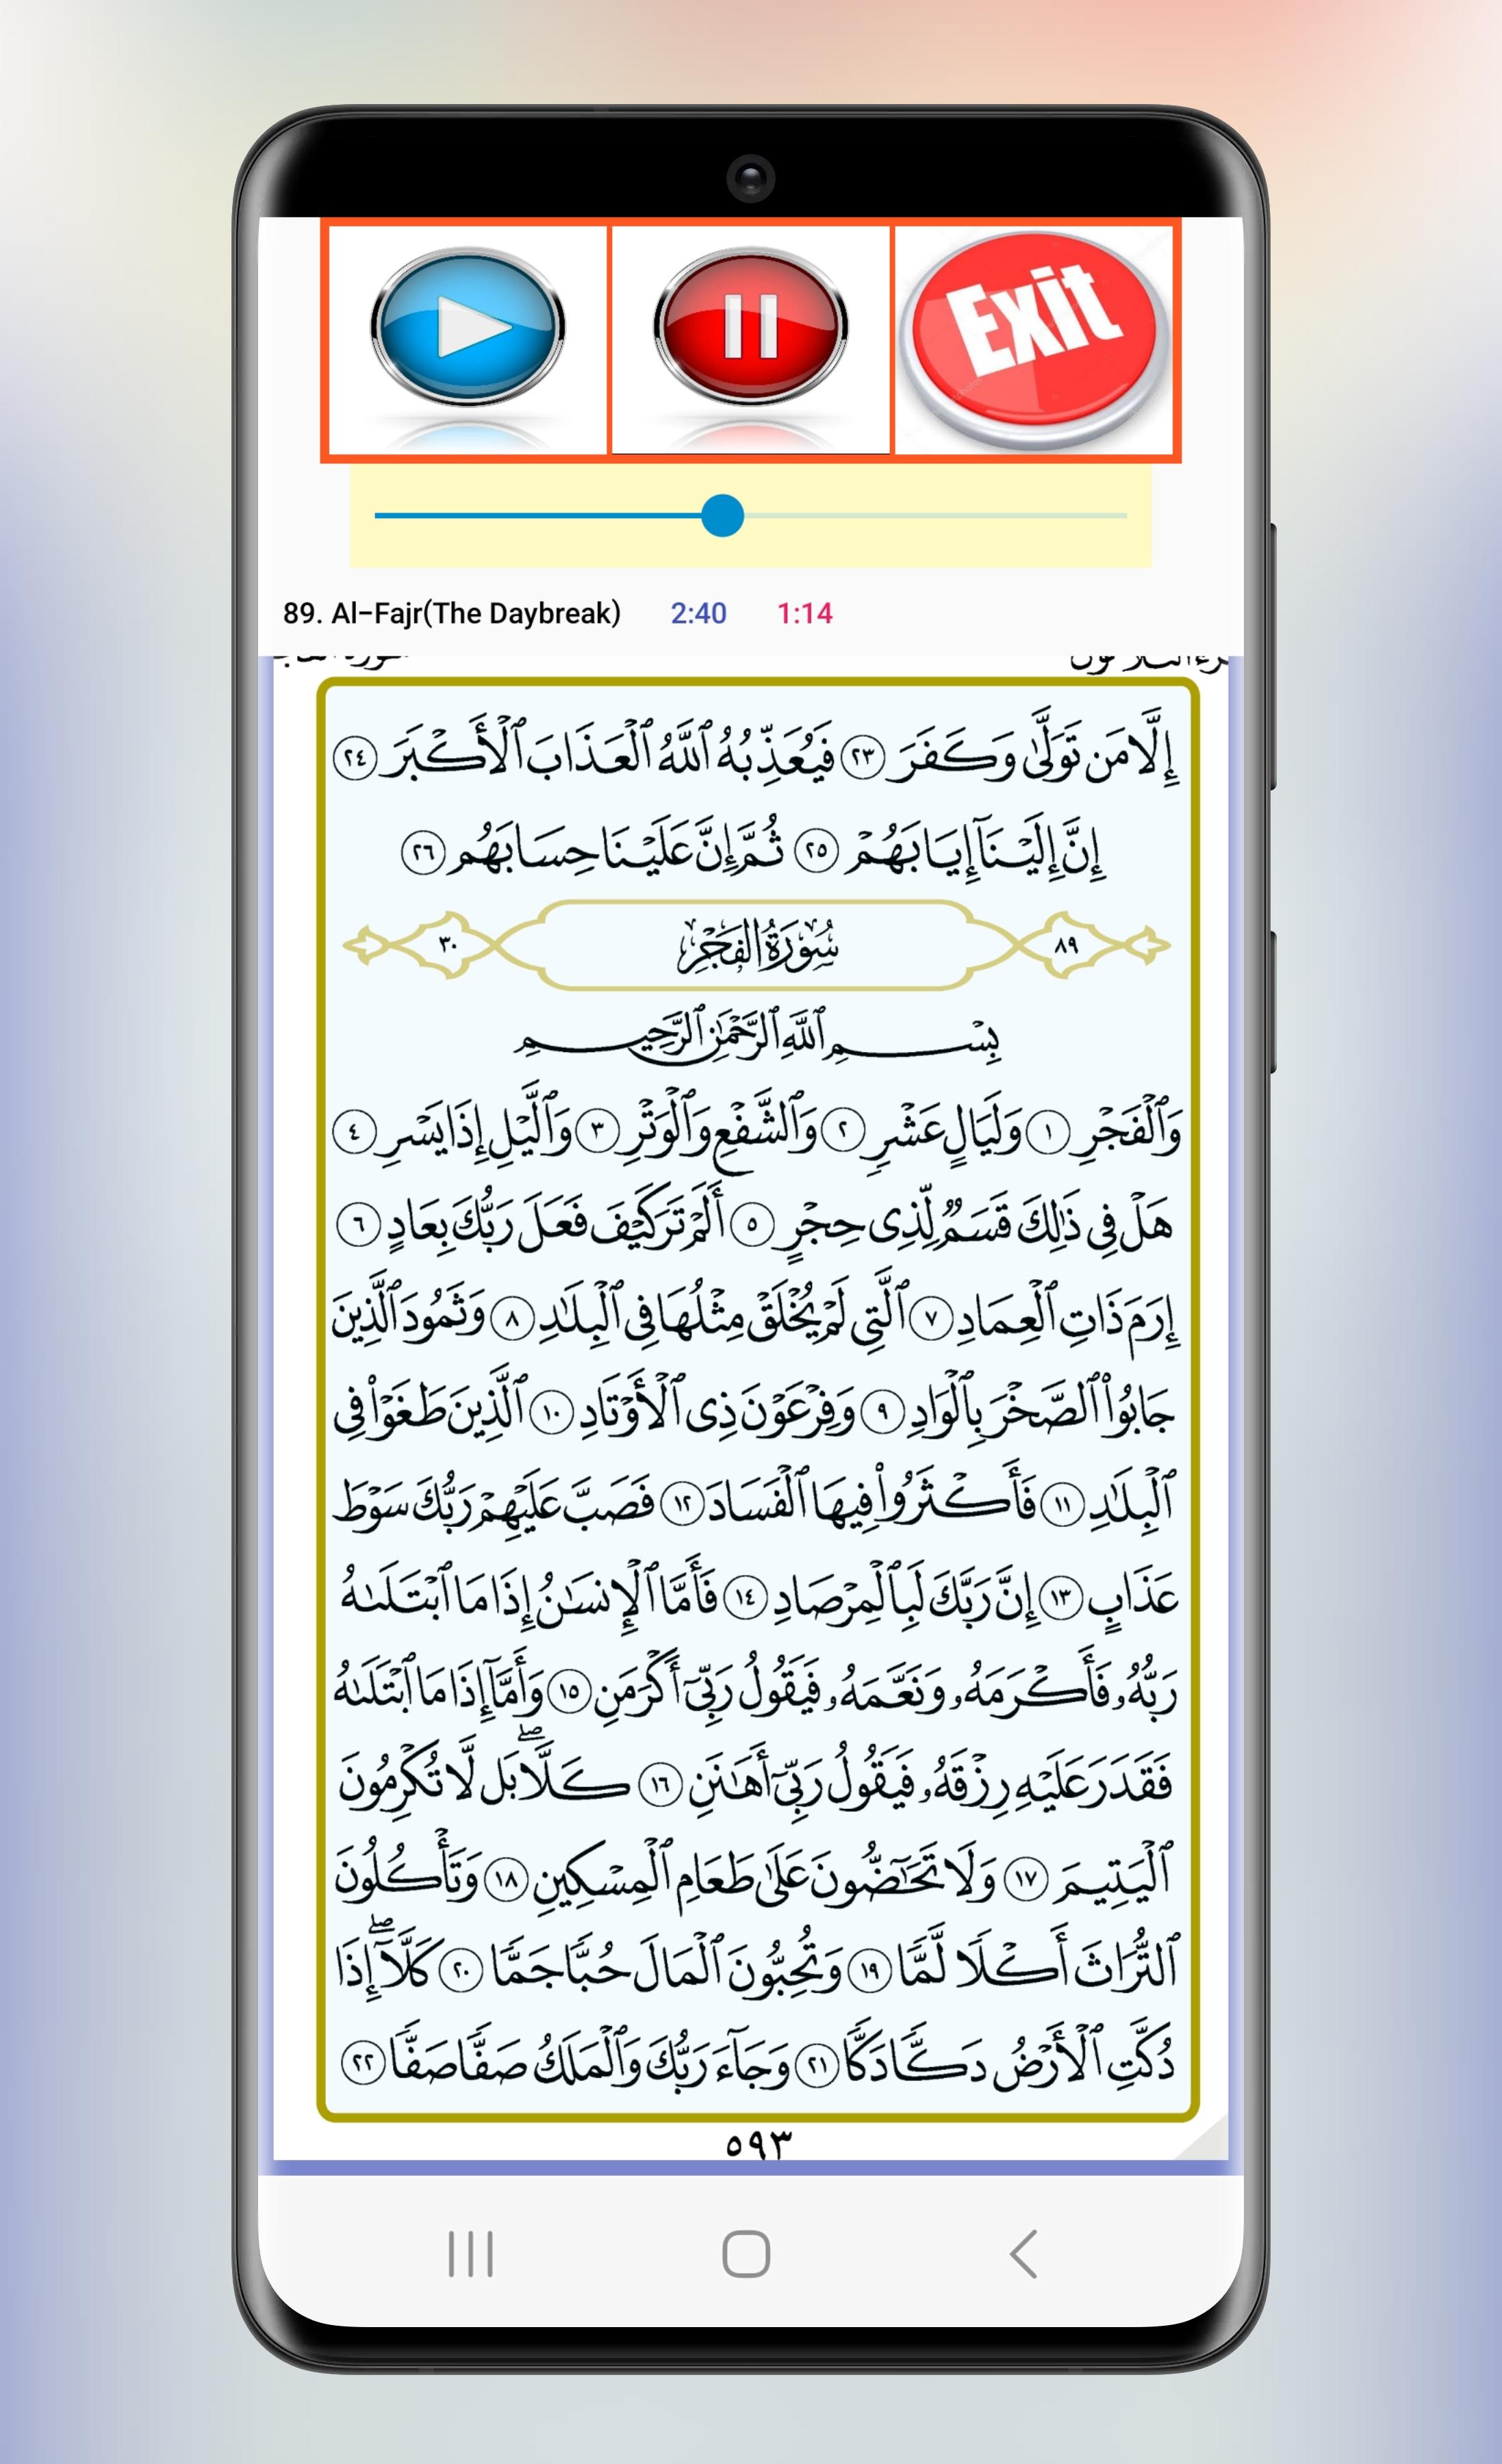 Exit
89. Al-Fajr(The Daybreak) 2:40 1:14
إِلَّا مَن تَوَلَّىٰ وَكَفَرَ ٢٣ فَيُعَذِّبُهُ ٱللَّهُ ٱلْعَذَابَ ٱلْأَكْبَرَ ٢٤
إِنَّ إِلَيْنَآ إِيَابَهُمْ ٢٥ ثُمَّ إِنَّ عَلَيْنَا حِسَابَهُم ٢٦
٨٩ سُورَةُ الفَجْرِ ٣٠
بِسْمِ ٱللَّهِ ٱلرَّحْمَٰنِ ٱلرَّحِيمِ
وَٱلْفَجْرِ ١ وَلَيَالٍ عَشْرٍ ٢ وَٱلشَّفْعِ وَٱلْوَتْرِ ٣ وَٱلَّيْلِ إِذَا يَسْرِ ٤
هَلْ فِى ذَٰلِكَ قَسَمٌ لِّذِى حِجْرٍ ٥ أَلَمْ تَرَ كَيْفَ فَعَلَ رَبُّكَ بِعَادٍ ٦
إِرَمَ ذَاتِ ٱلْعِمَادِ ٧ ٱلَّتِى لَمْ يُخْلَقْ مِثْلُهَا فِى ٱلْبِلَٰدِ ٨ وَثَمُودَ ٱلَّذِينَ
جَابُوا۟ ٱلصَّخْرَ بِٱلْوَادِ ٩ وَفِرْعَوْنَ ذِى ٱلْأَوْتَادِ ١٠ ٱلَّذِينَ طَغَوْا۟ فِى
ٱلْبِلَٰدِ ١١ فَأَكْثَرُوا۟ فِيهَا ٱلْفَسَادَ ١٢ فَصَبَّ عَلَيْهِمْ رَبُّكَ سَوْطَ
عَذَابٍ ١٣ إِنَّ رَبَّكَ لَبِٱلْمِرْصَادِ ١٤ فَأَمَّا ٱلْإِنسَٰنُ إِذَا مَا ٱبْتَلَىٰهُ
رَبُّهُۥ فَأَكْرَمَهُۥ وَنَعَّمَهُۥ فَيَقُولُ رَبِّىٓ أَكْرَمَنِ ١٥ وَأَمَّآ إِذَا مَا ٱبْتَلَىٰهُ
فَقَدَرَ عَلَيْهِ رِزْقَهُۥ فَيَقُولُ رَبِّىٓ أَهَٰنَنِ ١٦ كَلَّا ۖ بَل لَّا تُكْرِمُونَ
ٱلْيَتِيمَ ١٧ وَلَا تَحَٰٓضُّونَ عَلَىٰ طَعَامِ ٱلْمِسْكِينِ ١٨ وَتَأْكُلُونَ
ٱلتُّرَاثَ أَكْلًا لَّمًّا ١٩ وَتُحِبُّونَ ٱلْمَالَ حُبًّا جَمًّا ٢٠ كَلَّآ ۖ إِذَا
دُكَّتِ ٱلْأَرْضُ دَكًّا دَكًّا ٢١ وَجَآءَ رَبُّكَ وَٱلْمَلَكُ صَفًّا صَفًّا ٢٢
٥٩٣